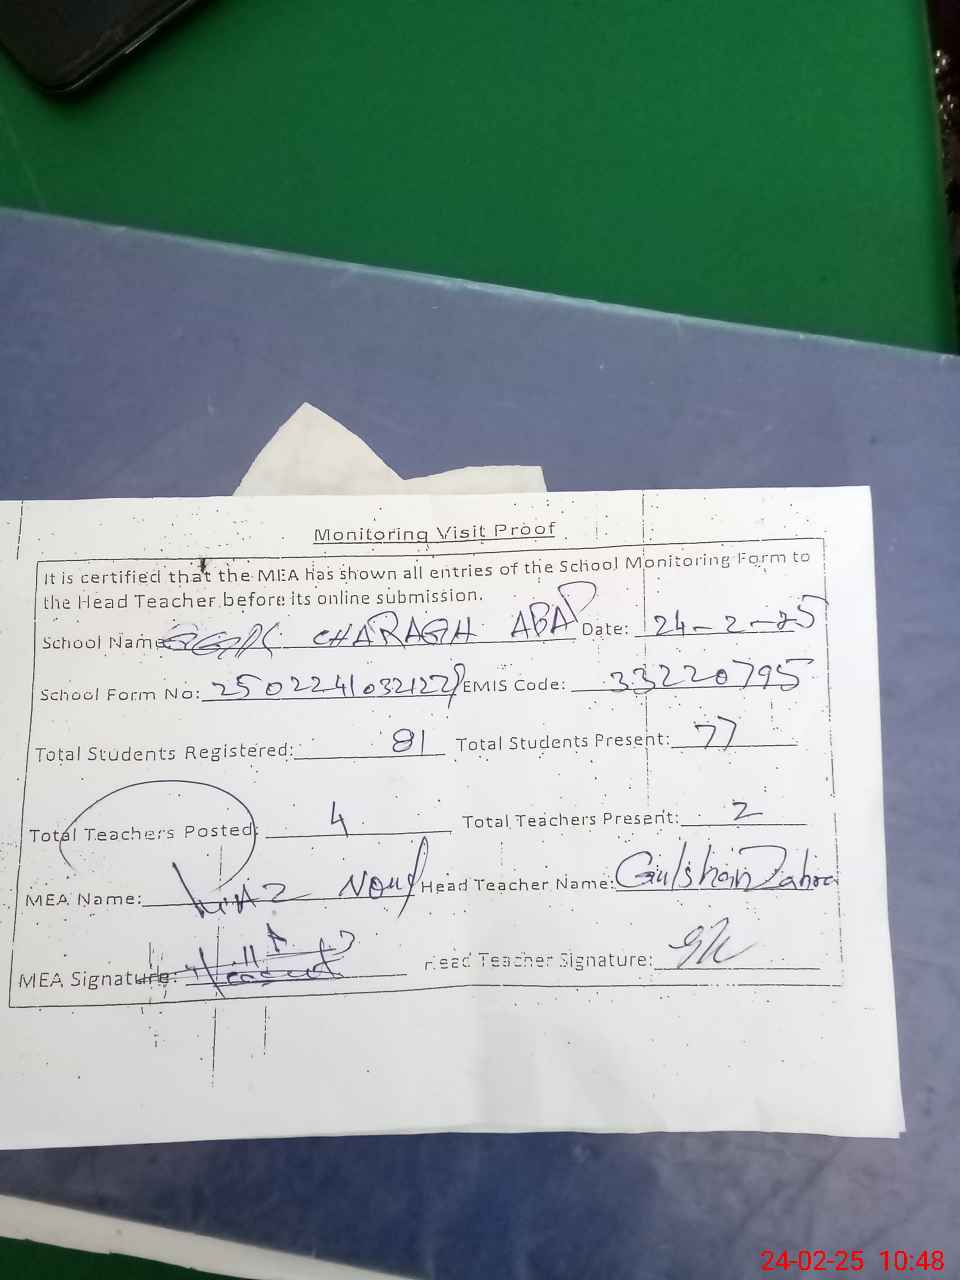 Monitoring Visit Proof
It is certified that the MEA has shown all entries of the School Monitoring Form to
the Head Teacher before its online submission.
School Name CHARAGH ABAD Date: 24-2-25
School Form No: EMIS Code: 33220795
Total Students Registered: 81 Total Students Present: 77
Total Teachers Posted: 4 Total Teachers Present: 2
MEA Name: Head Teacher Name: Gulshan Zahra
MEA Signature: Head Teacher Signature:
24-02-25 10:48